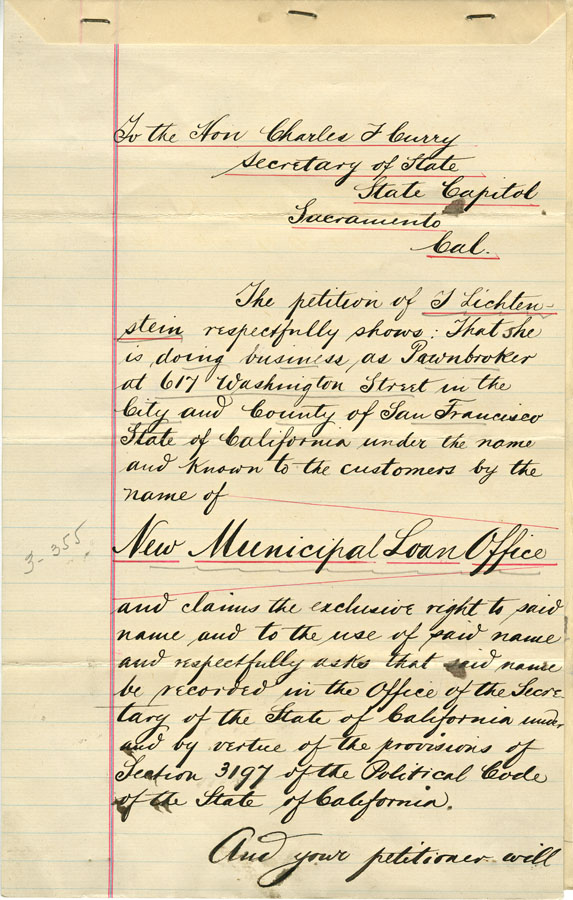 To the Hon Charles F Curry
Secretary of State
State Capitol
Sacramento
Cal.
The petition of I Lichten-
stein respectfully shows: That she
is doing business as Pawnbroker
at 617 Washington Street in the
City and County of San Francisco
State of California under the name
and known to the customers by the
name of
3-355
New Municipal Loan Office
and claims the exclusive right to said
name and to the use of said name
and respectfully asks that said name
be recorded in the Office of the Secre-
tary of the State of California under
and by vertue of the provisions of
Section 3197 of the Political Code
of the State of California.
And your petitioner will